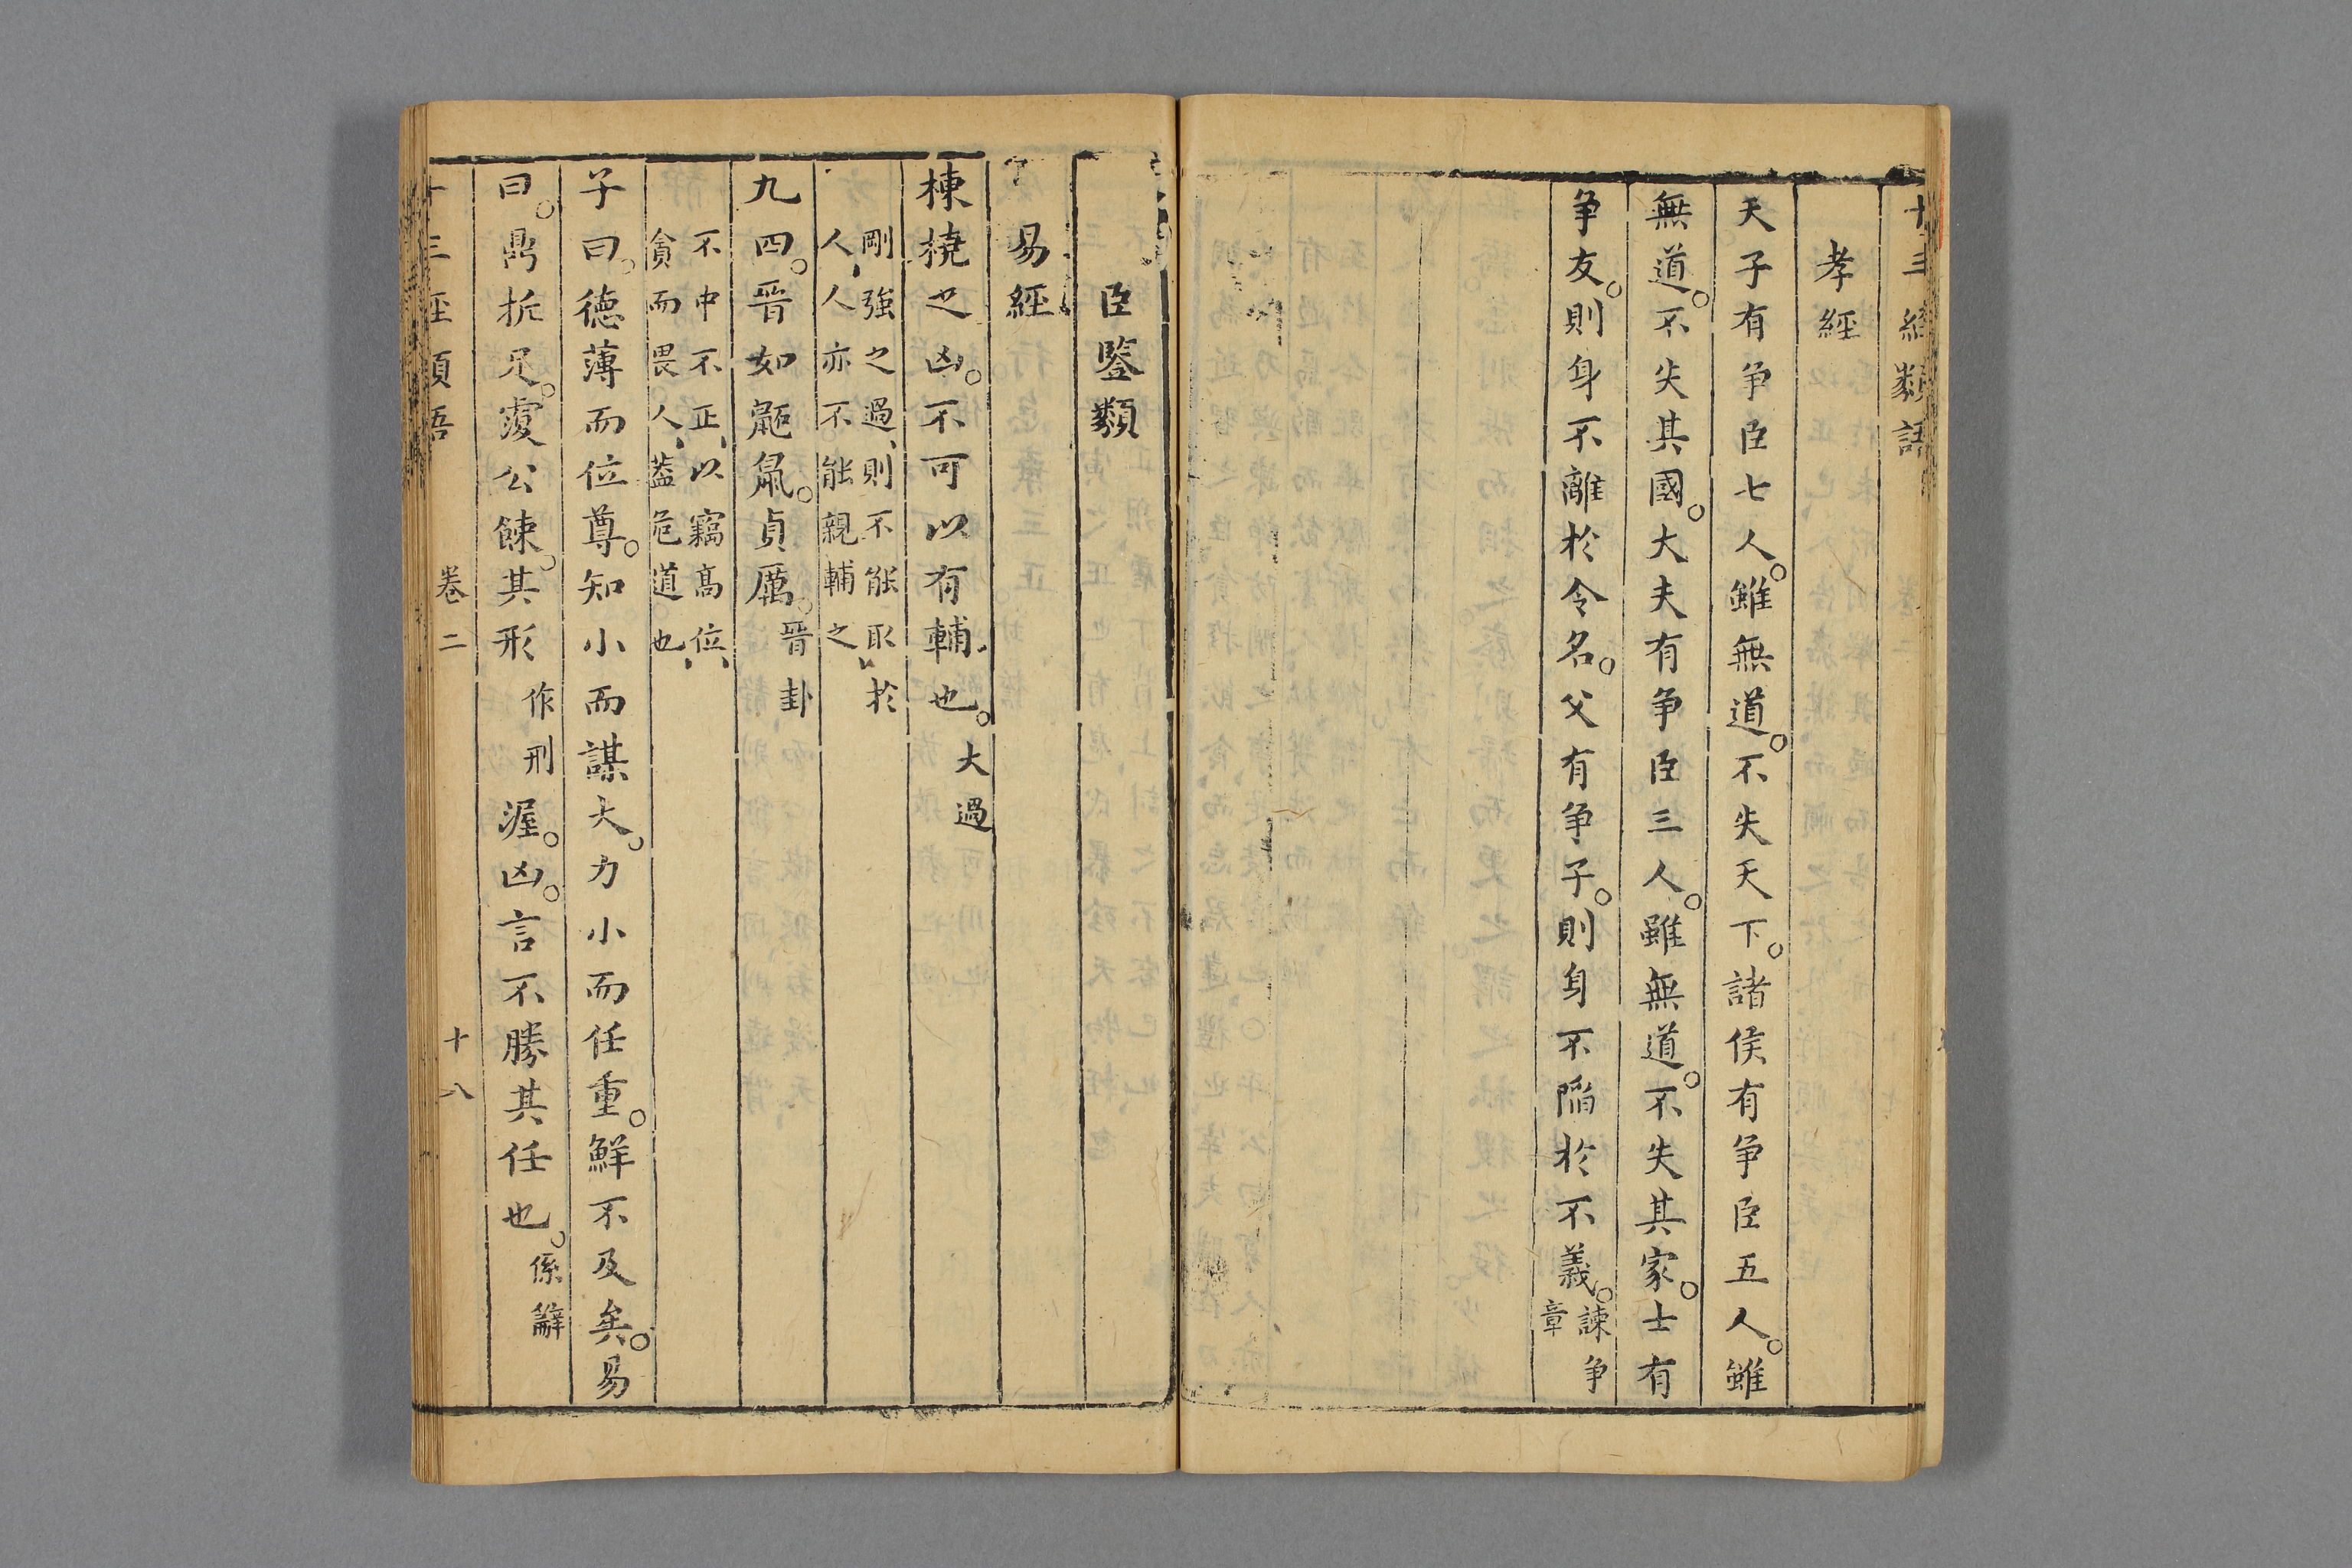 十三經類語
孝經
天子有争臣七人。雖無道。不失天下。諸侯有争臣五人。雖
無道。不失其國。大夫有争臣三人。雖無道。不失其家。士有
争友。則身不離於令名。父有争子。則身不陷於不義。諫争
章
臣鑒類
易經
棟撓之凶。不可以有輔也。大過
剛強之過、則不能取於
人、人亦不能親輔之、
九四。晉如鼫䑕。貞厲。晉卦
不中不正、以竊高位、
貪而畏人、葢危道也、
子曰。德薄而位尊。知小而謀大。力小而任重。鮮不及矣。易
曰。鼎折足。覆公餗。其形作刑渥。凶。言不勝其任也。係辭
十三經類語 卷二 十八